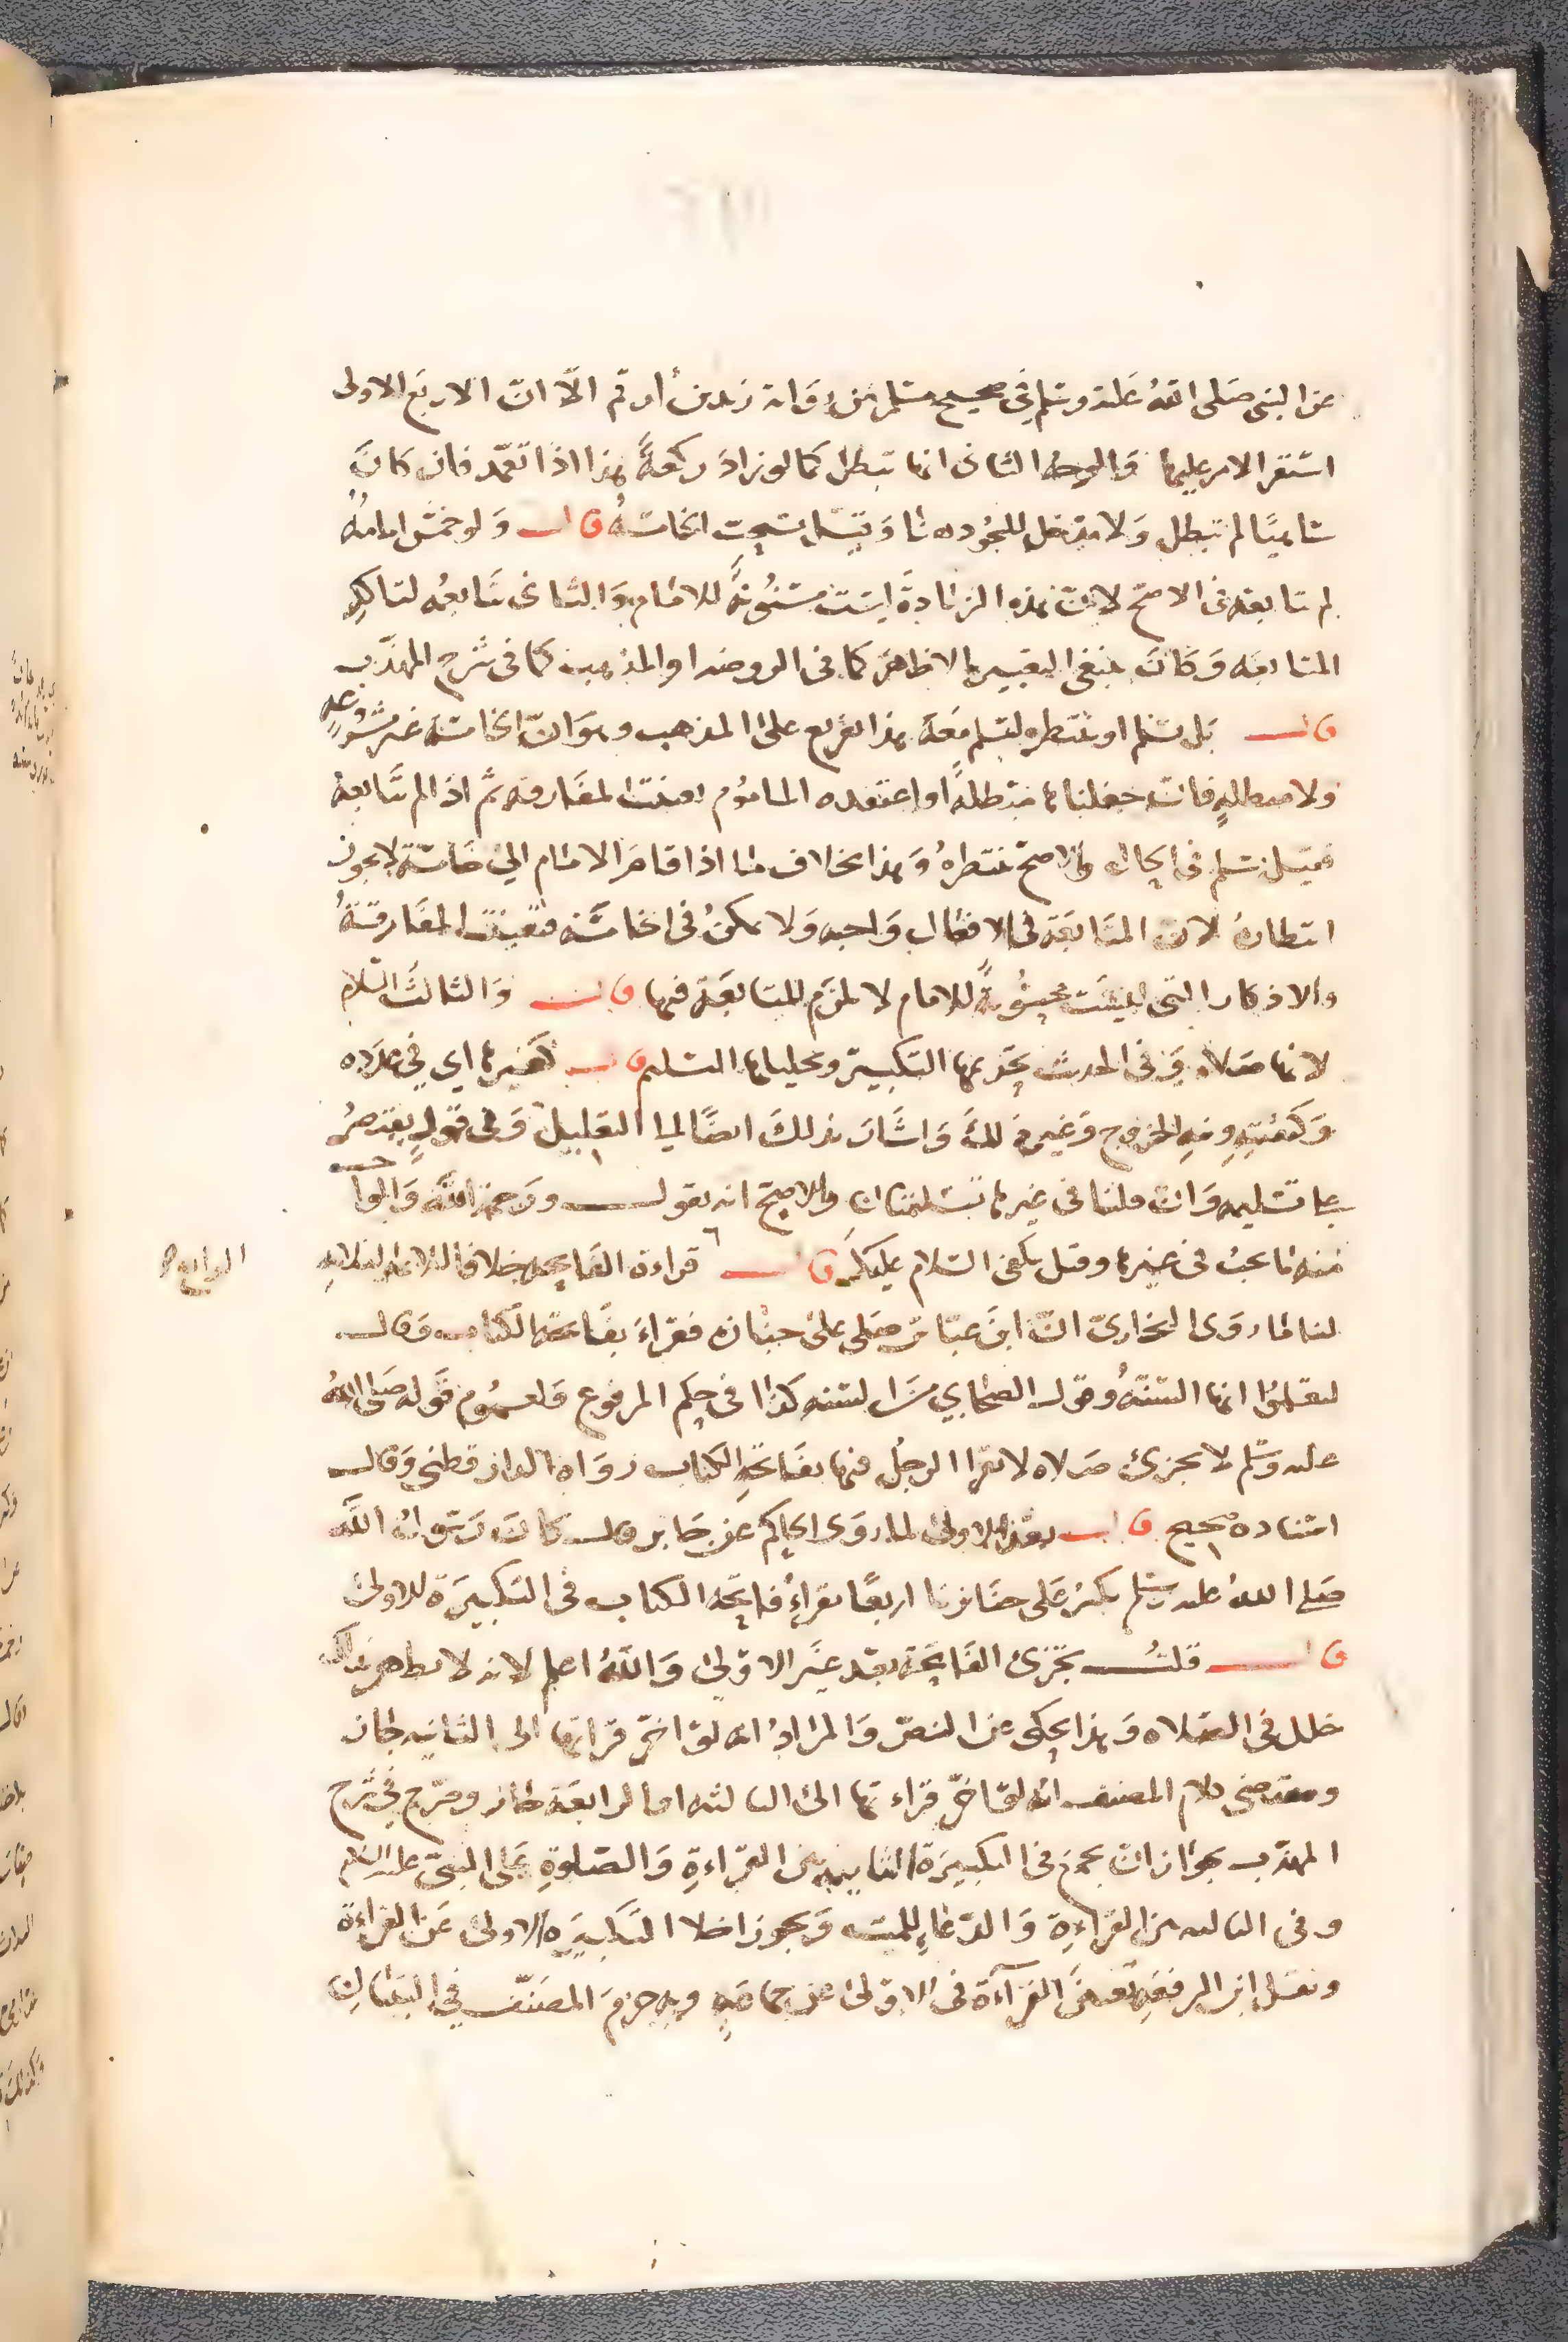 عن النبي صَلى الله عَليه وسلم في صحيح مسلم من روَاية زيد بن أرقم الّا انّ الاربَع الاولى
استقر الامر عليها وَالوجه الثاني انها تبطل كما لو زادَ ركعةً هذا اذا تعمّد فان كانَ
ناسيًا لم تبطل وَلا مدخل للسجُود هنا وَقيل تستحب الخامسةُ قال وَلو خمّس امامهُ
لم يتابعه في الاصحّ لانّ هذه الزيادةَ ليسَت مسنُونةً للامام وَالثاني يتابعُه لتاكدِ
المتابعه وَكانَ ينبغي التعبير بالاظهر كما في الروضه او المذهب كما في شرح المهذّب
قال بَل يسلم او ينتظره ليسلم معَهُ هذا تفريع على المذهب وهوَ انّ الخامسَة غير مشروعه
ولا مبطلهٍ فان جعلناها مبطلةً او اعتقده الماموُم تعينت المفارقه ثمّ اذا لم يتابعهُ
فقيل يسلم في الحال والاصحّ ينتظرهُ وَهذا بخلاف ما اذا قامَ الامام الى خامسَة لا يجوز
انتظارهُ لانّ المتابعَة في الافعال وَاجبه وَلا يمكنُ في الخامسَه فتعينت المفارقةُ
والاذكار التي ليسَت محسُوبةً للامام لا يلزم المتابعَة فيها قال وَالثالثُ السّلام
لانها صَلاه وَفي الحديث تحريمها التكبير وتحليلها التسليم قال كغيرها اي في عدَده
وَكيفيّتِهِ ونيةِ الخروج وَغير ذلكَ وَاشارَ بذلكَ ايضًا الى التعليل وَفي قولٍ يقتصرُ
على تسليمه وَان قلنا في غيرها تسليمتان والاصح انه يقول ورَحمة الله وَالواجب
منه ما يجبُ في غيرها وقيل يكفي السّلام عليك قال قراءة الفاتحه خلافا للائمة الثلاثه
الرابع
لنا ما روَى البخاريّ انّ ابنَ عبّاسٍ صَلى على جنازه فقراءَ بفاتحة الكتاب وَقال
لتعلمُوا انها السّنةُ وقول الصحابي من السنه كذا في حكم المرفوع وَلعمُوم قَوله صَلى الله
عليه وَسّلم لا يجزئ صَلاه لا يقرا الرجُل فيها بفاتحةِ الكتاب روَاه الدارقطني وَقال
اسناده صحيح قال بعد الاولى لما روَى الحاكم عن جابر قال كانَ رَسُول اللهَ
صَلى اللهُ عليه وسلم يكبرُ عَلى جنائزنا اربعًا يقراءُ فاتحة الكتاب في التكبيرَة للاولى
قال قلتُ تجزئ الفاتحَة بعد غيَر الاوّلى وَاللهُ اعلم لانه لا يظهر بذلك
خلل في الصّلاه وَهذا يحكى عن النصّ وَالمرادُ انه لو اخّر قراتها الى الثانيه جاز
ومقتضى كلام المصنف انه لو اخّر قراءتها الى الثالثه او الرابعَة جاز وصرّح في شرح
المهذّب بجواز ان يجمع في التكبيرَة الثانيه بين القراءةِ وَالصّلوةِ عَلى النبيّ عليه السّلام
وفي الثالثه بين القراءةِ وَالدّعاءِ للميت وَيجوز اخلا التكبيرَه الاولى عَن القراءة
ونقل ابن الرفعَه تعيّن القرآءَة في الاوّلى عن جماعَةٍ وبهِ جزمَ المصَنّف في التبيانِ